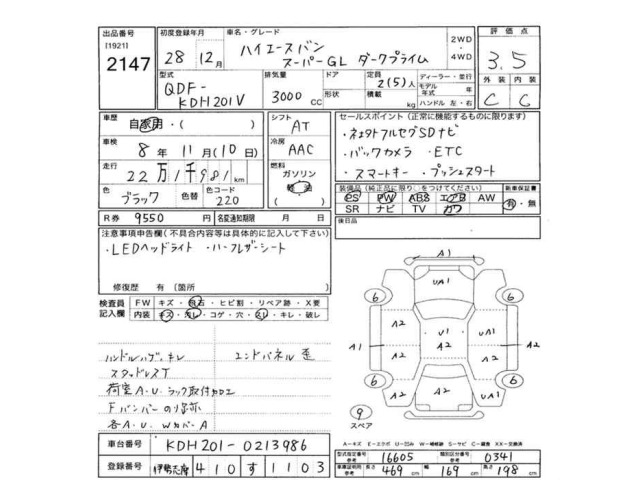 出品番号
[1921]
2147
初度登録年月
28年 12月
車名・グレード
ハイエースバン
スーパーGL ダークプライム
2WD
4WD
評価点
3.5
型式
QDF-
KDH201V
排気量
3000 CC
ドア
形状
定員
2(5)人
積載
kg
ディーラー・並行
モデル
年式 年
ハンドル 左・右
外装 内装
C C
車歴
自家用・( )
シフト
AT
車検
8年 11月(10日)
冷房
AAC
走行
22万1千981km
燃料
ガソリン
軽油
色
ブラック
色替
色コード
220
( )
R券 9550 円 名変通知期限 月 日
セールスポイント(正常に機能するものに限ります)
・ネオトナルフルセグSDナビ
・バックカメラ ・ETC
・スマートキー・プッシュスタート
装備品(純正品に限り○をつけてください)
PS PW ABS エアB AW
SR ナビ TV カワ
新車保証書
有・無
後日品
注意事項申告欄(不具合内容等は具体的に記入して下さい)
・LEDヘッドライト ・ハーフレザーシート
修復歴 有(箇所 )
検査員
記入欄
FW キズ・飛石・ヒビ割・リペア跡・X要
内装 キズ・汚レ・コゲ・穴・スレ・キレ・破レ
ハンドルハゲ、キレ エンドパネル歪
スタッドレスT
荷室A・U ラック取付加工
Fバンパーのり跡
各A・U WカバーA
A1
UA1
6 6
A2 A2
A1 U1 A1
A2 A2 A2
A2 UA1
6 6
9
スペア
A=キズ E=エクボ U=凹み W=補修跡 S=サビ C=腐蝕 XX=交換済
車台番号 KDH201-0213986
登録番号 伊勢志摩 410 す 1103
型式指定番号
参考 16605
類別区分番号
参考 0341
車庫証明用
参考 長さ 469cm 幅 169cm 高さ 198cm